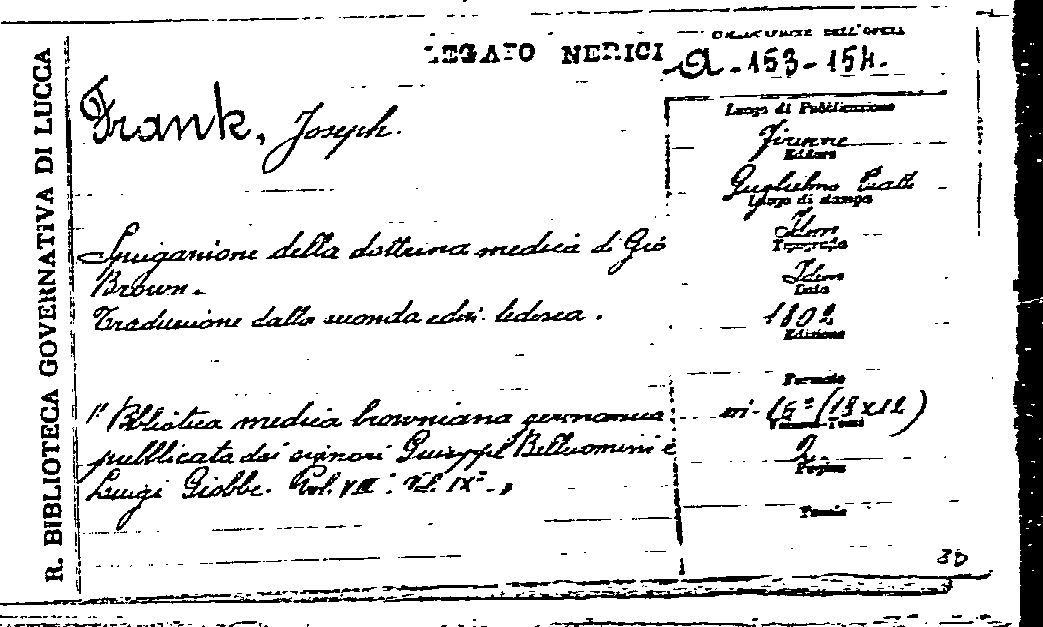 R. BIBLIOTECA GOVERNATIVA DI LUCCA
LEGATO NERICI
COLLOCAZIONE DELL'OPERA
A-153-154.
Frank, Joseph.
Luogo di Pubblicazione
Firenze
Editore
Guglielmo Piatti
Luogo di stampa
Idem
Tipografia
Idem
Data
1802
Edizione
Spiegazione della dottrina medica di Gio
Brown.
Traduzione dalla seconda ediz. tedesca.
Formato
in-16° (19x12)
Volumi-Tomi
2
Pagine
Tavole
1° Biblioteca medica browniana germanica
pubblicata dai signori Giuseppe Belluomini e
Luigi Giobbe. Vol. VIII. Vol. IX°